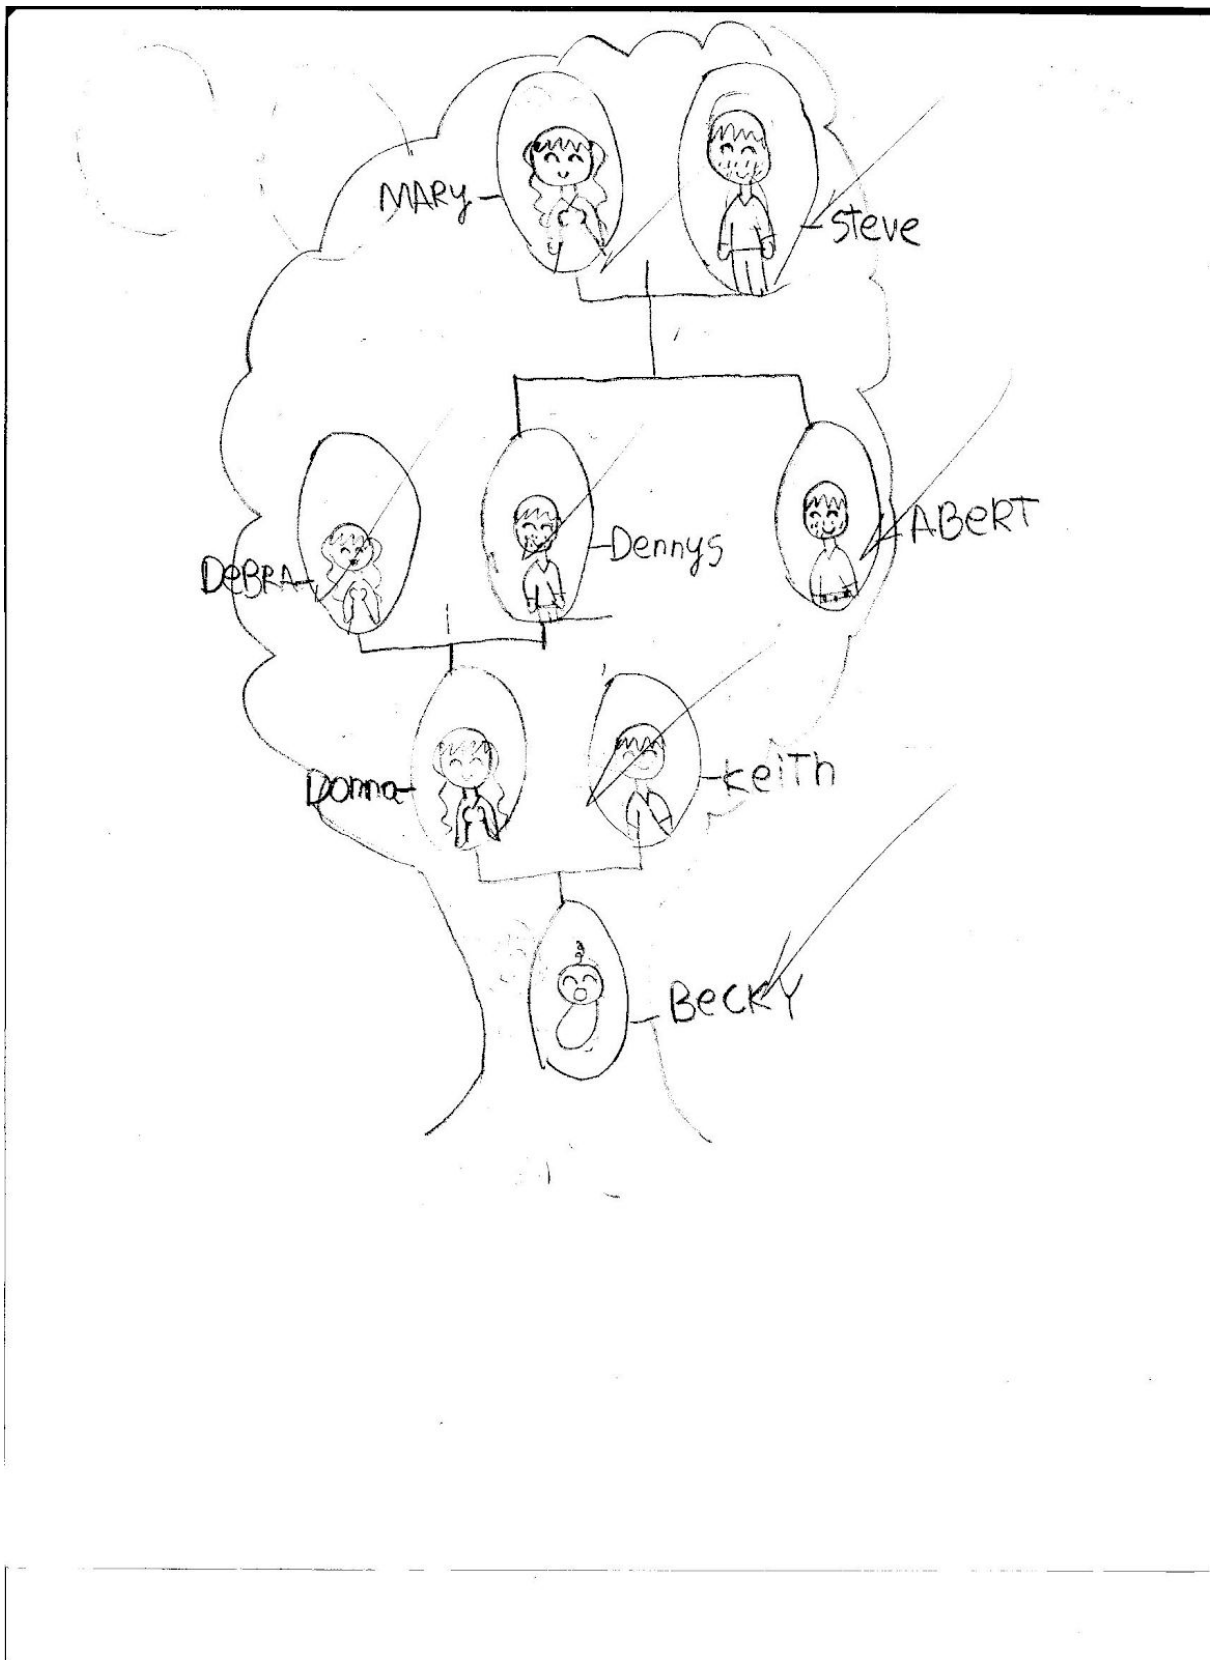 MARy
Steve
DeBRA
Dennys
ABeRT
Donna
KeiTh
BeCKY